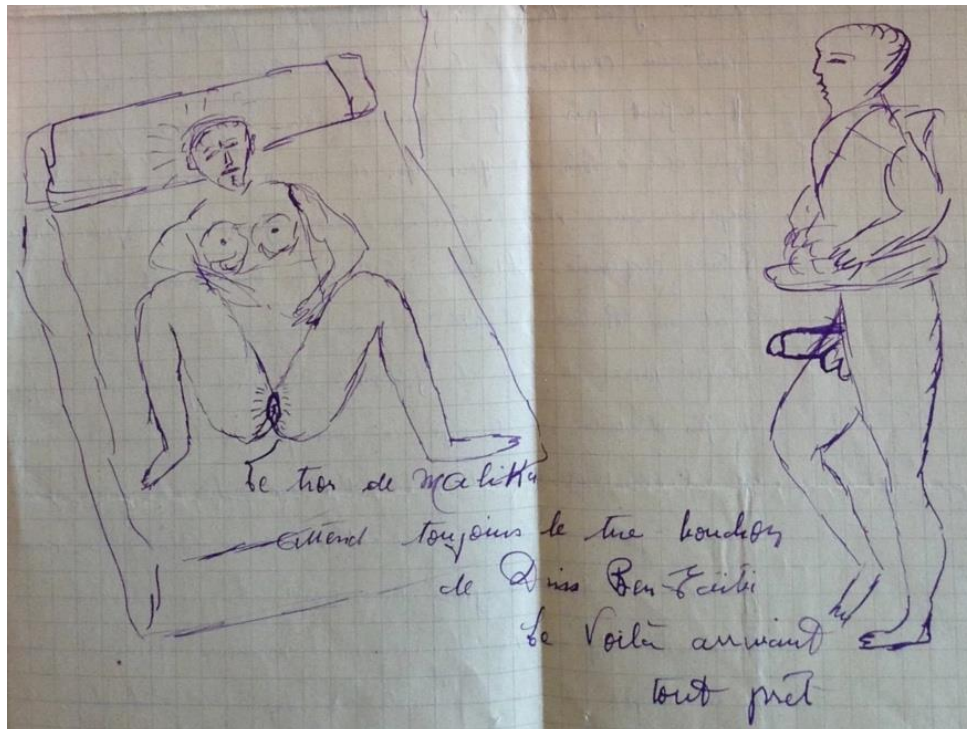 Le trou de Malika
attend toujours le tire bouchon
de Driss Ben
Le Voilà arrivant
tout prêt